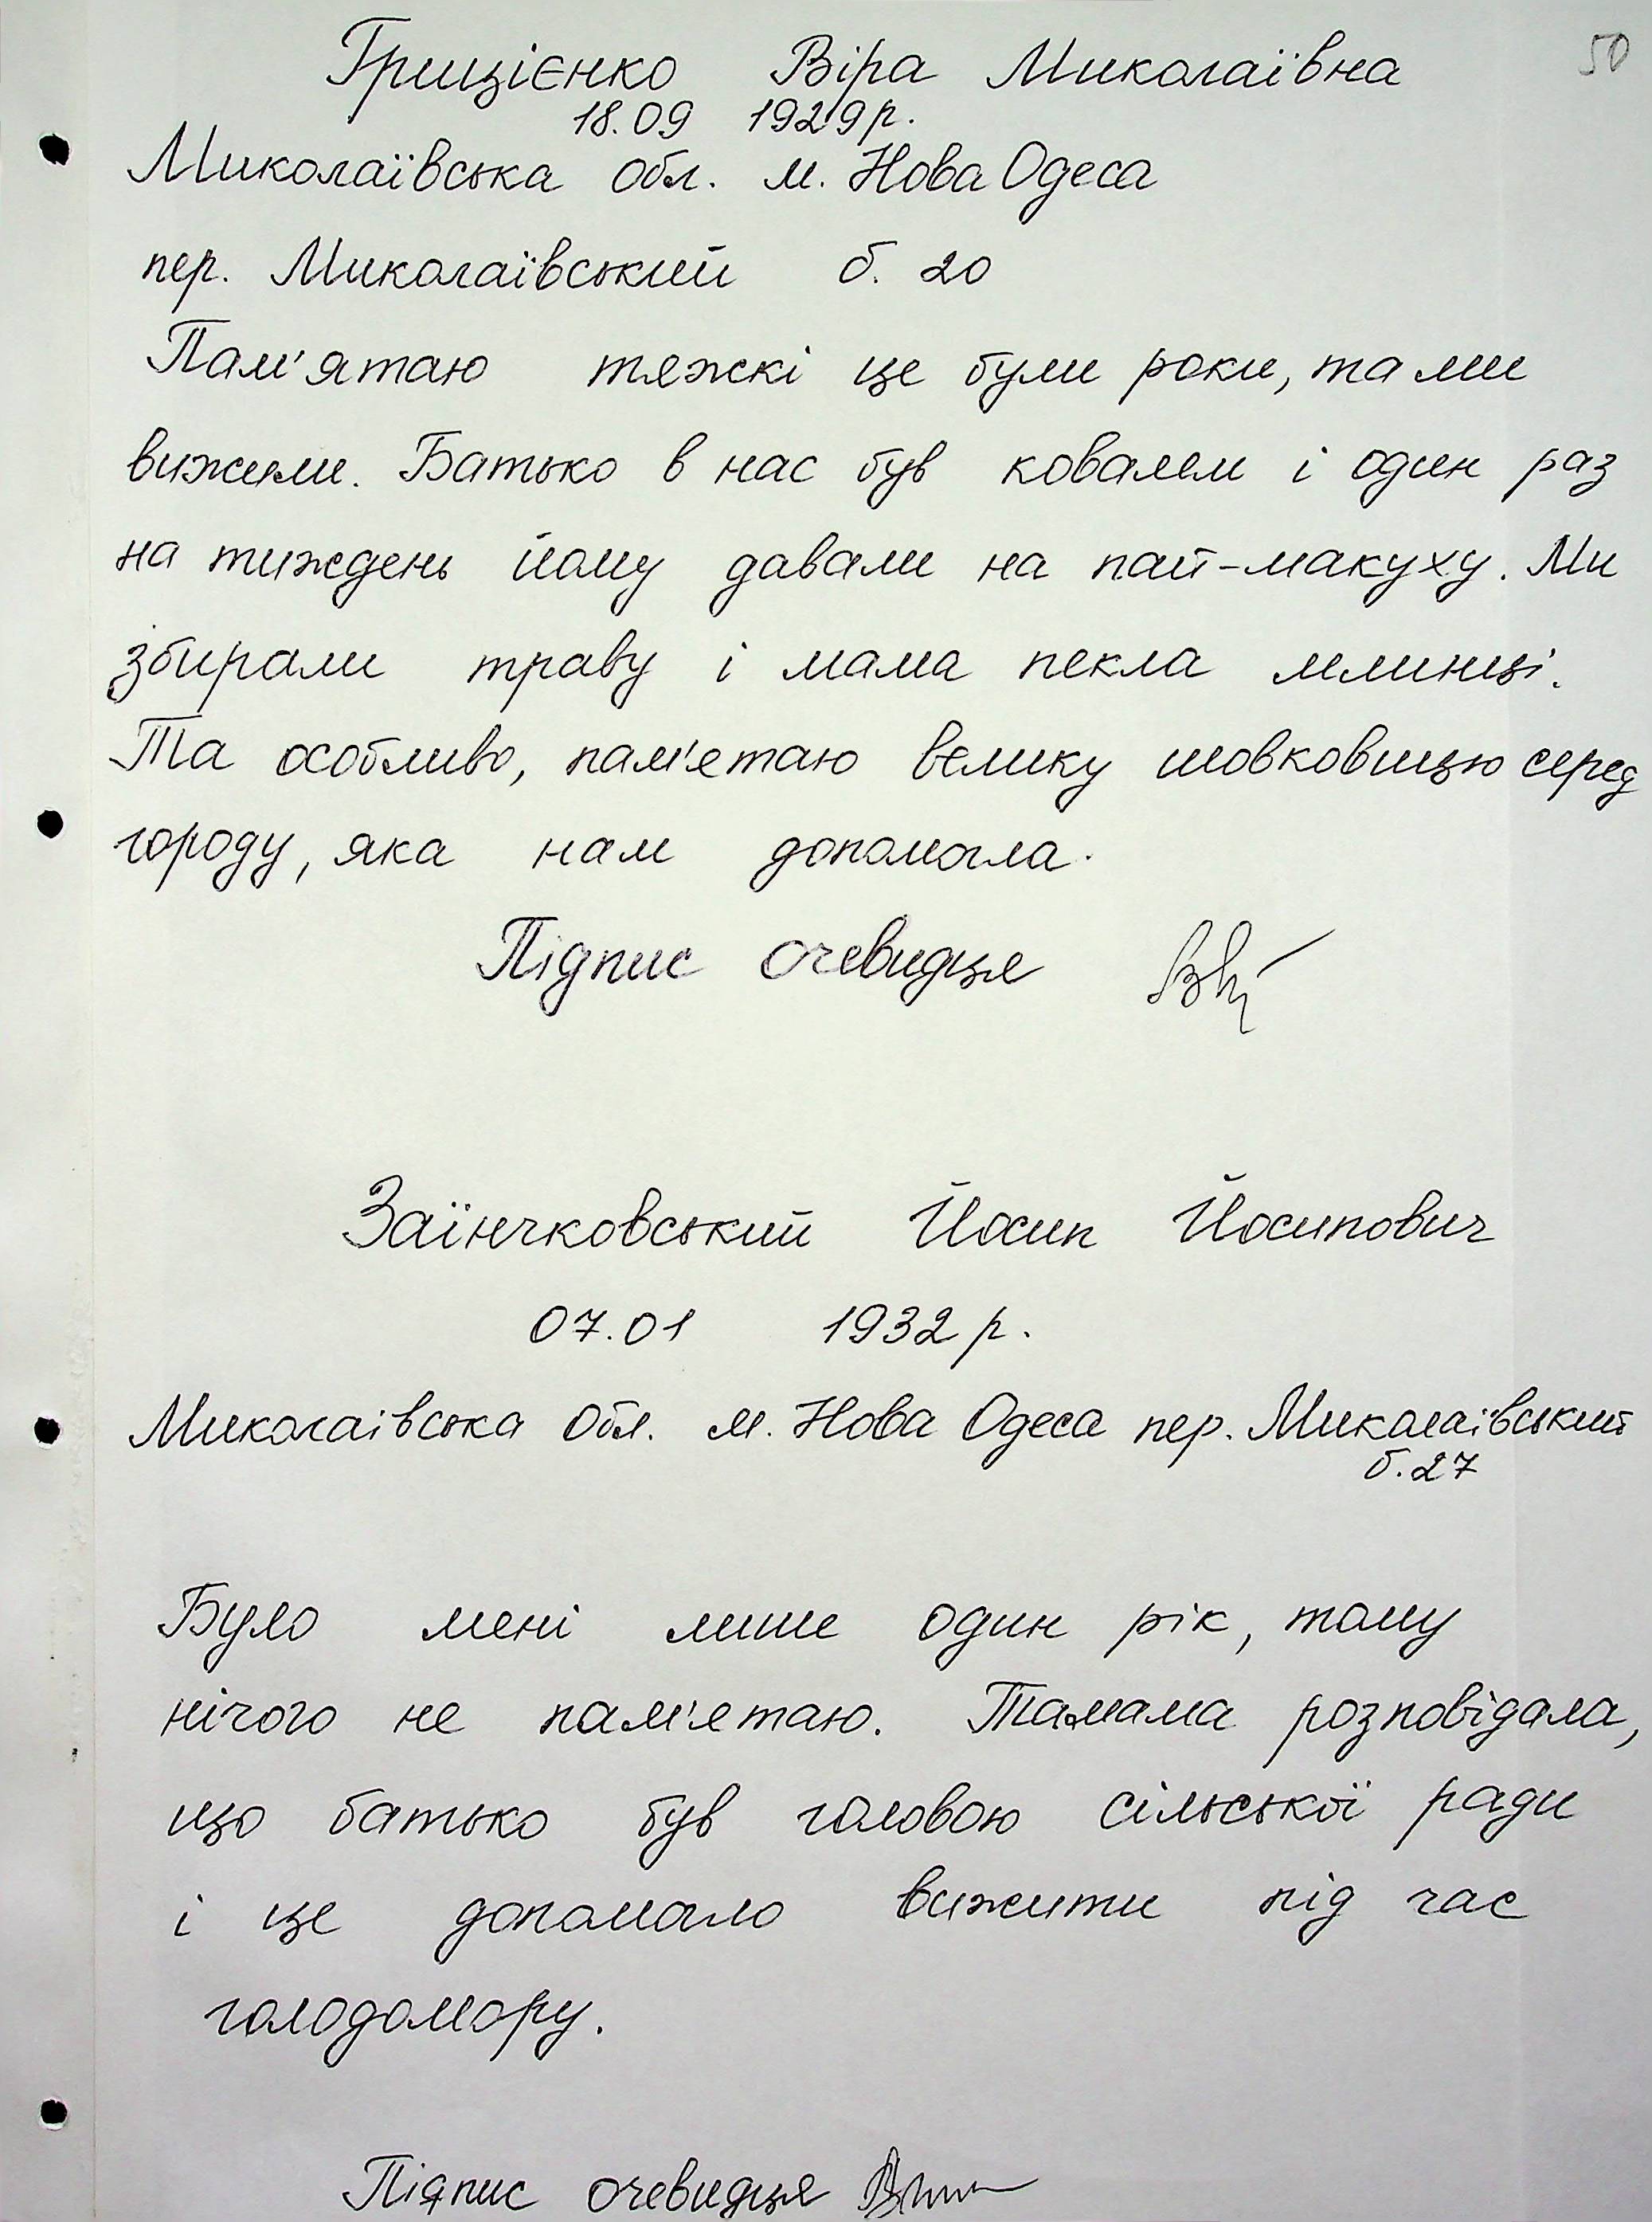 50
Грицієнко Віра Миколаївна
18.09 1929р.
Миколаївська обл. м. Нова Одеса
пер. Миколаївський б. 20
Пам'ятаю тяжкі це були роки, та ми
вижили. Батько в нас був ковалем і один раз
на тиждень йому давали на пай-макуху. Ми
збирали траву і мама пекла млинці.
Та особливо, пам'ятаю велику шовковицю серед
городу, яка нам допомогла.
Підпис очевидця
Заїнчковський Йосип Йосипович
07.01 1932 р.
Миколаївська обл. м. Нова Одеса пер. Миколаївський
б. 27
Було мені лише один рік, тому
нічого не пам'ятаю. Та мама розповідала,
що батько був головою сільської ради
і це допомогло вижити під час
голодомору.
Підпис очевидця